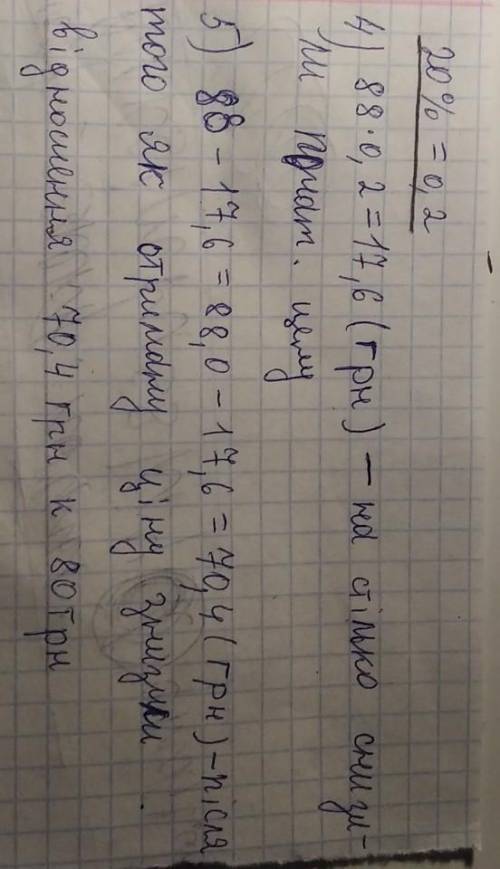 20% = 0,2
4) 88·0,2=17,6(грн) — на стілько снизи-
ли почат. цену
5) 88-17,6=88,0-17,6=70,4(грн)-після
того як отриману ціну знизили.
відношення 70,4 грн к 80грн